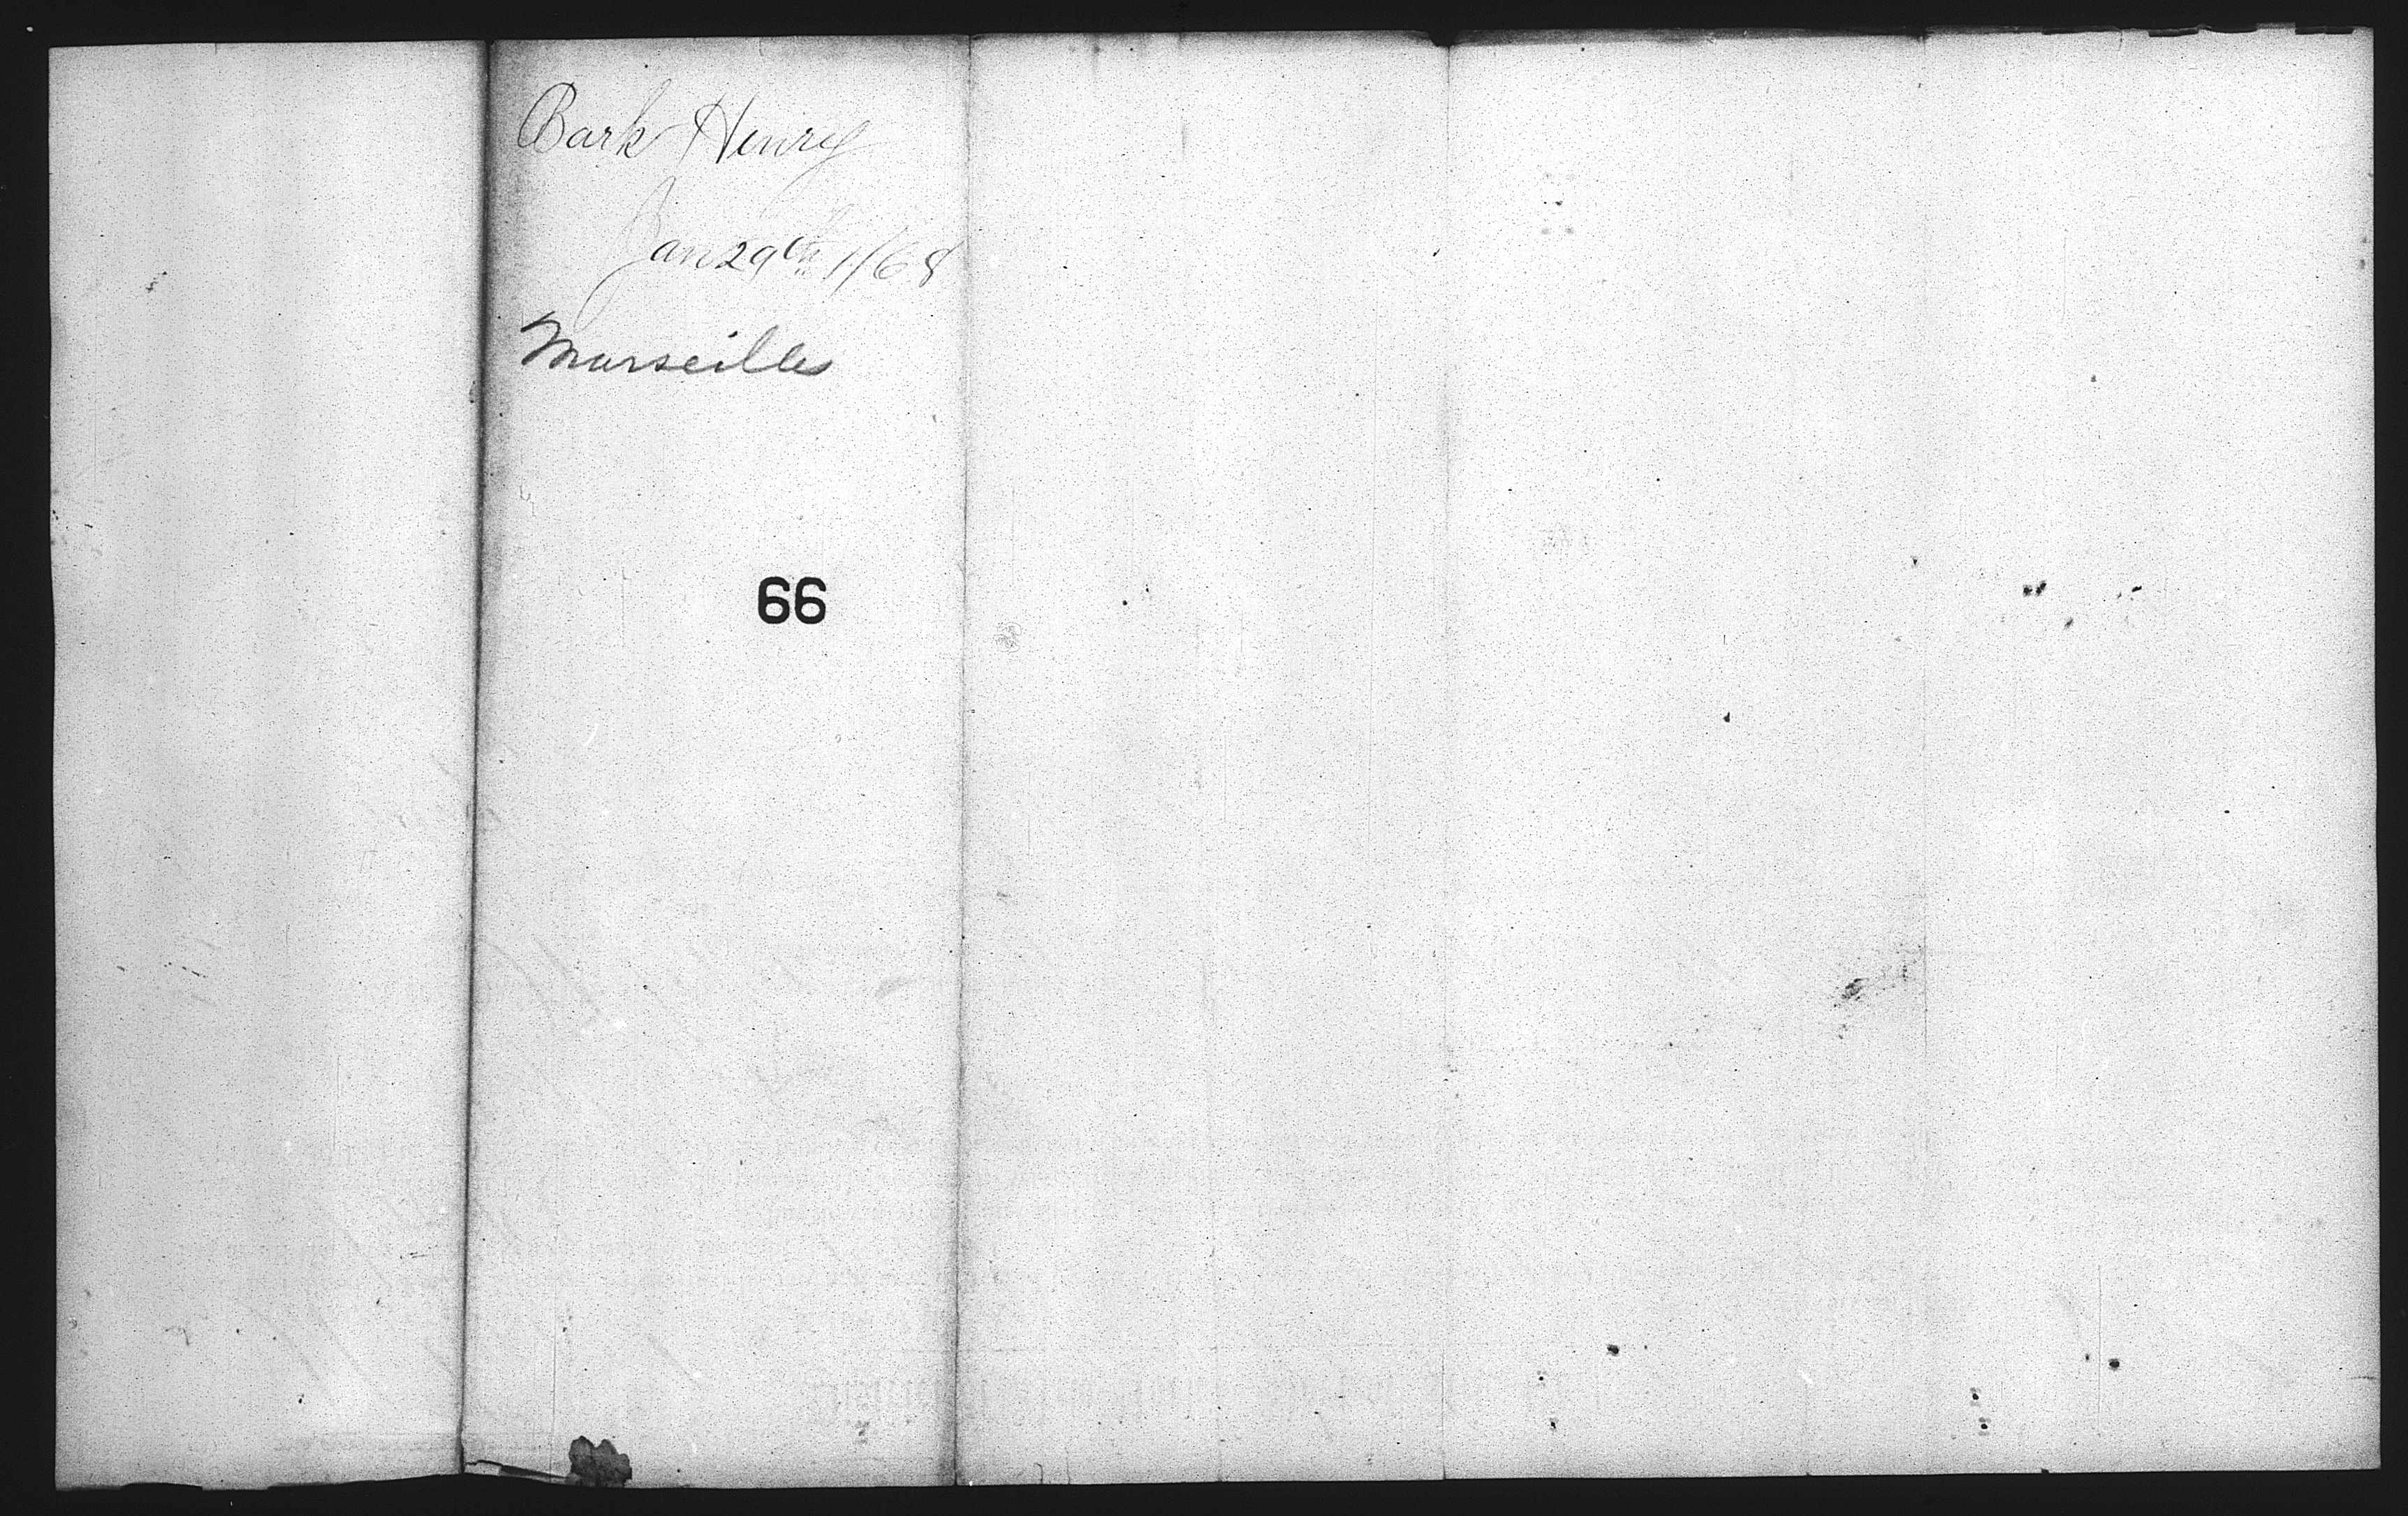 Bark Henry
Jan 29th 1868
Marseilles
66